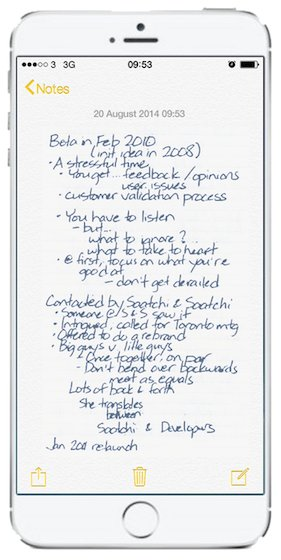 3 3G 09:53
Notes
20 August 2014 09:53
Beta in Feb 2010
(init idea in 2008)
• A stressful time
• You get... feedback / opinions
user issues
• customer validation process
• You have to listen
- but...
what to ignore?
what to take to heart
• @ first, focus on what you're
good at
- don't get derailed
Contacted by Saatchi & Saatchi
• Someone @ S&S saw it
• Intrigued, called for Toronto mtg
• Offered to do a rebrand
• Big guys v. little guys
Once together, on par
- Don't bend over backwards
meet as equals
Lots of back & forth
She translates
between
Saatchi & Developers
Jan 2011 relaunch